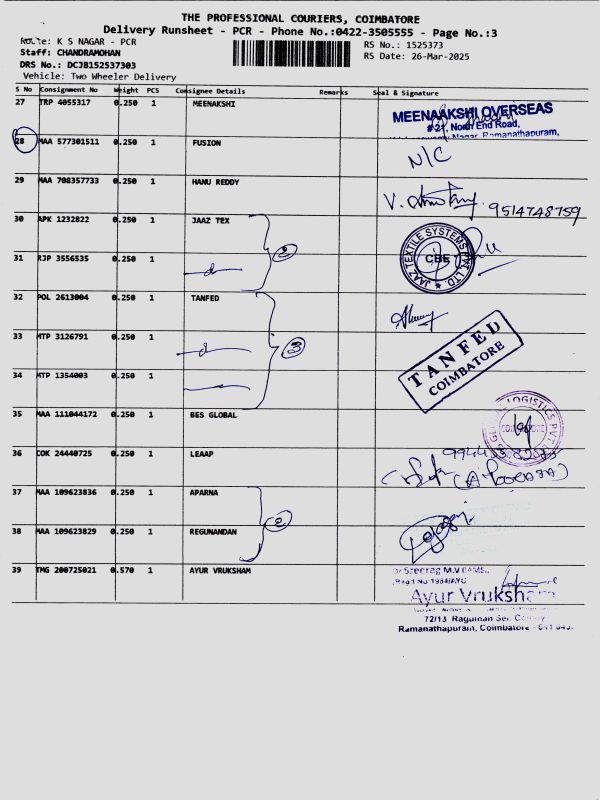 THE PROFESSIONAL COURIERS, COIMBATORE
Delivery Runsheet - PCR - Phone No.:0422-3505555 - Page No.:3
Route: K S NAGAR - PCR
RS No.: 1525373
Staff: CHANDRAMOHAN
RS Date: 26-Mar-2025
DRS No.: DCJB152537303
Vehicle: Two Wheeler Delivery
S No Consignment No Weight PCS Consignee Details Remarks Seal & Signature
27 TRP 4055317 0.250 1 MEENAKSHI
MEENAAKSHI OVERSEAS
#21, North End Road,
Nagar, Ramanathapuram,
28 MAA 577301511 0.250 1 FUSION
N/C
29 MAA 708357733 0.250 1 HANU REDDY
V. 9514748759
30 APK 1232822 0.250 1 JAAZ TEX
2
JAAZ TEXTILE SYSTEMS PVT LTD.
CBE
31 RJP 3556535 0.250 1
32 POL 2613004 0.250 1 TANFED
3
TANFED
COIMBATORE
33 MTP 3126791 0.250 1
34 MTP 1354003 0.250 1
35 MAA 111044172 0.250 1 BES GLOBAL
LOGISTICS PVT
36 COK 24440725 0.250 1 LEAAP
37 MAA 109623836 0.250 1 APARNA
2
38 MAA 109623829 0.250 1 REGUNANDAN
39 TMG 200725021 0.570 1 AYUR VRUKSHAM
Dr Sreerag M.V BAMS.,
Ayur Vruksham
72/13 Ragunan
Ramanathapuram, Coimbatore - 641 045.